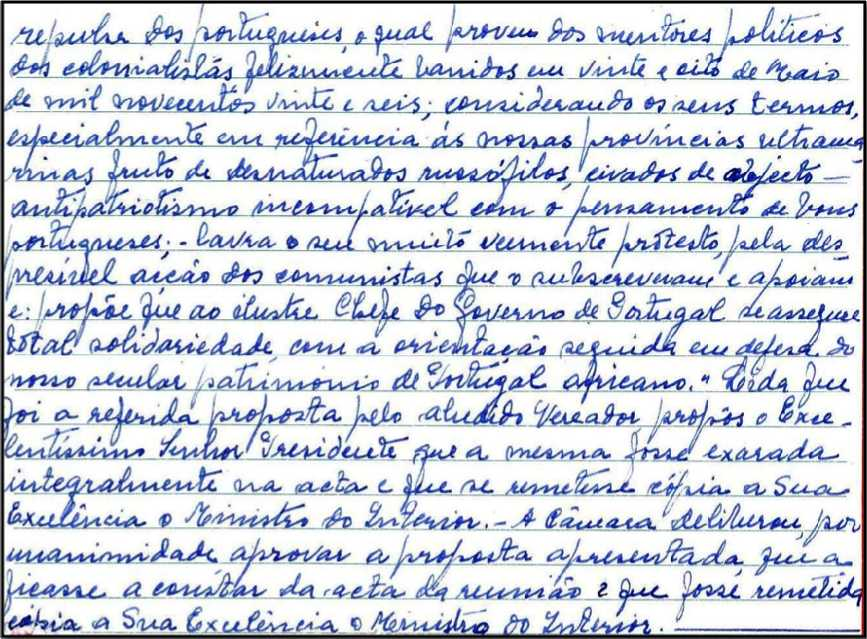 repulsa dos portugueses, o qual provem dos mentores politicos
dos colonialistas felizmente banidos em vinte e oito de Maio
de mil novecentos vinte e seis; considerando os seus termos,
especialmente em referência ás nossas províncias ultrama-
rinas fruto de desnaturados russófilos, eivados de abjecto —
antipatriotismo incompatível com o pensamento de bons
portugueses: - lavra o seu muito veemente protesto, pela des-
presível aicção dos comunistas que o subscreveram e apoiam
e: propõe que ao ilustre Chefe do Governo de Portugal se assegure
total solidariedade com a orientação seguida em defesa do
nosso secular patrimonio de Portugal africano." Lida que
foi a referida proposta pelo aludido Vereador, propôs o Exce-
lentíssimo Senhor Presidente que a mesma fosse exarada
integralmente na acta e que se remetesse cópia a Sua
Excelência o Ministro do Interior. - A Câmara deliberou, por
unanimidade aprovar a proposta apresentada, que a
ficasse a constar da acta da reunião e que fosse remetida
cópia a Sua Excelência o Ministro do Interior.